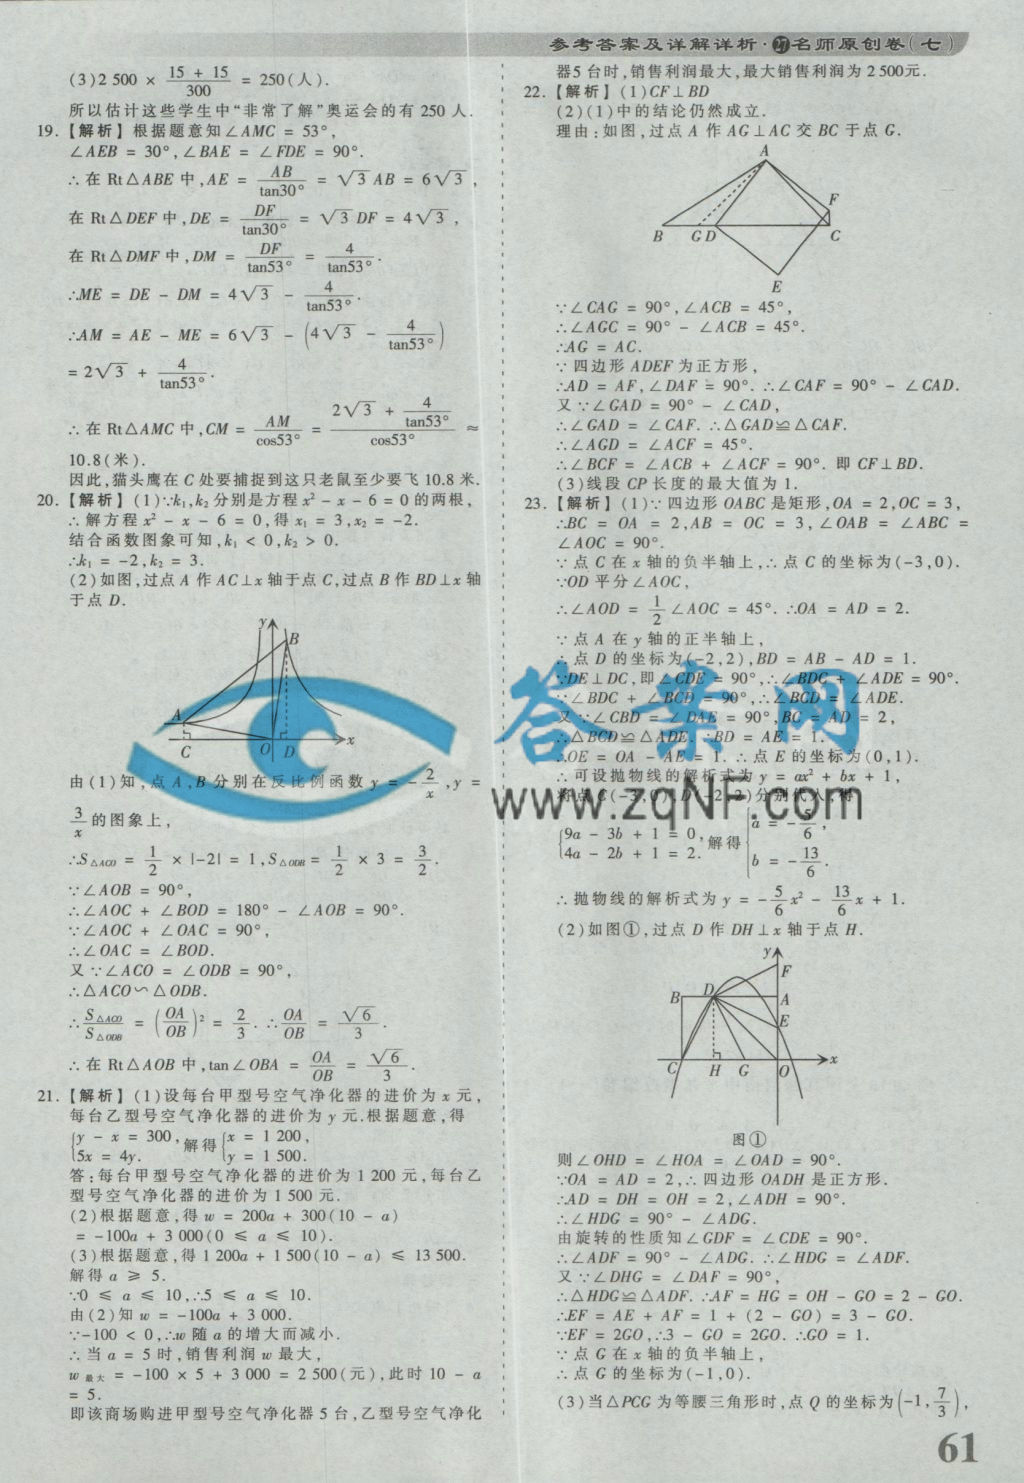 参考答案及详解详析·27名师原创卷(七)
(3)2 500 × (15 + 15)/300 = 250(人).
所以估计这些学生中“非常了解”奥运会的有 250 人.
19.【解析】根据题意知∠AMC = 53°,
∠AEB = 30°,∠BAE = ∠FDE = 90°.
∴在 Rt△ABE 中,AE = AB/tan30° = √3 AB = 6√3,
在 Rt△DEF 中,DE = DF/tan30° = √3 DF = 4√3,
在 Rt△DMF 中,DM = DF/tan53° = 4/tan53°.
∴ME = DE - DM = 4√3 - 4/tan53°.
∴AM = AE - ME = 6√3 - (4√3 - 4/tan53°)
= 2√3 + 4/tan53°.
∴在 Rt△AMC 中,CM = AM/cos53° = (2√3 + 4/tan53°)/cos53° ≈
10.8(米).
因此,猫头鹰在 C 处要捕捉到这只老鼠至少要飞 10.8 米.
20.【解析】(1)∵k₁,k₂分别是方程 x² - x - 6 = 0 的两根,
∴解方程 x² - x - 6 = 0,得 x₁ = 3,x₂ = -2.
结合函数图象可知,k₁ < 0,k₂ > 0.
∴k₁ = -2,k₂ = 3.
(2)如图,过点 A 作 AC⊥x 轴于点 C,过点 B 作 BD⊥x 轴
于点 D.
y
B
A
C O D x
由(1)知,点 A,B 分别在反比例函数 y = -2/x,y =
3/x 的图象上,
∴S△ACO = 1/2 × |-2| = 1,S△ODB = 1/2 × 3 = 3/2.
∵∠AOB = 90°,
∴∠AOC + ∠BOD = 180° - ∠AOB = 90°.
∵∠AOC + ∠OAC = 90°,
∴∠OAC = ∠BOD.
又∵∠ACO = ∠ODB = 90°,
∴△ACO∽△ODB.
∴S△ACO/S△ODB = (OA/OB)² = 2/3. ∴OA/OB = √6/3.
∴在 Rt△AOB 中,tan∠OBA = OA/OB = √6/3.
21.【解析】(1)设每台甲型号空气净化器的进价为 x 元,
每台乙型号空气净化器的进价为 y 元.根据题意,得
{y - x = 300, 5x = 4y. 解得{x = 1 200, y = 1 500.
答:每台甲型号空气净化器的进价为 1 200 元,每台乙
型号空气净化器的进价为 1 500 元.
(2)根据题意,得 w = 200a + 300(10 - a)
= -100a + 3 000(0 ≤ a ≤ 10).
(3)根据题意,得 1 200a + 1 500(10 - a) ≤ 13 500.
解得 a ≥ 5.
∵0 ≤ a ≤ 10,∴5 ≤ a ≤ 10.
由(2)知 w = -100a + 3 000.
∵-100 < 0,∴w 随 a 的增大而减小.
∴当 a = 5 时,销售利润 w 最大,
w最大 = -100 × 5 + 3 000 = 2 500(元),此时 10 - a
= 5.
即该商场购进甲型号空气净化器 5 台,乙型号空气净化
器5 台时,销售利润最大,最大销售利润为 2 500元.
22.【解析】(1)CF⊥BD
(2)(1)中的结论仍然成立.
理由:如图,过点 A 作 AG⊥AC 交 BC 于点 G.
A
F
B G D C
E
∵∠CAG = 90°,∠ACB = 45°,
∴∠AGC = 90° - ∠ACB = 45°.
∴AG = AC.
∵四边形 ADEF 为正方形,
∴AD = AF,∠DAF = 90°. ∴∠CAF = 90° - ∠CAD.
又∵∠GAD = 90° - ∠CAD,
∴∠GAD = ∠CAF. ∴△GAD≌△CAF.
∴∠AGD = ∠ACF = 45°.
∴∠BCF = ∠ACB + ∠ACF = 90°. 即 CF⊥BD.
(3)线段 CP 长度的最大值为 1.
23.【解析】(1)∵四边形 OABC 是矩形,OA = 2,OC = 3,
∴BC = OA = 2,AB = OC = 3,∠OAB = ∠ABC =
∠AOC = 90°.
∵点 C 在 x 轴的负半轴上,∴点 C 的坐标为(-3,0).
∵OD 平分∠AOC,
∴∠AOD = 1/2∠AOC = 45°. ∴OA = AD = 2.
∵点 A 在 y 轴的正半轴上,
∴点 D 的坐标为(-2,2),BD = AB - AD = 1.
∵DE⊥DC,即∠CDE = 90°,∴∠BDC + ∠ADE = 90°.
∵∠BDC + ∠BCD = 90°,∴∠BCD = ∠ADE.
又∵∠CBD = ∠DAE = 90°,BC = AD = 2,
∴△BCD≌△ADE. ∴BD = AE = 1.
∴OE = OA - AE = 1. ∴点 E 的坐标为(0,1).
∴可设抛物线的解析式为 y = ax² + bx + 1,
将点 C(-3,0),D(-2,2)分别代入,得
{9a - 3b + 1 = 0, 4a - 2b + 1 = 2. 解得{a = -5/6, b = -13/6.
∴抛物线的解析式为 y = -5/6x² - 13/6x + 1.
(2)如图①,过点 D 作 DH⊥x 轴于点 H.
y
F
B D A
E
C H G O x
图①
则∠OHD = ∠HOA = ∠OAD = 90°.
∵OA = AD = 2,∴四边形 OADH 是正方形.
∴AD = DH = OH = 2,∠ADH = 90°.
∴∠HDG = 90° - ∠ADG.
由旋转的性质知∠GDF = ∠CDE = 90°.
∴∠ADF = 90° - ∠ADG. ∴∠HDG = ∠ADF.
又∵∠DHG = ∠DAF = 90°,
∴△HDG≌△ADF. ∴AF = HG = OH - GO = 2 - GO.
∴EF = AE + AF = 1 + (2 - GO) = 3 - GO.
∵EF = 2GO,∴3 - GO = 2GO. ∴GO = 1.
∵点 G 在 x 轴的负半轴上,
∴点 G 的坐标为(-1,0).
(3)当△PCG 为等腰三角形时,点 Q 的坐标为(-1,7/3),
答案网
www.zqNF.com
61